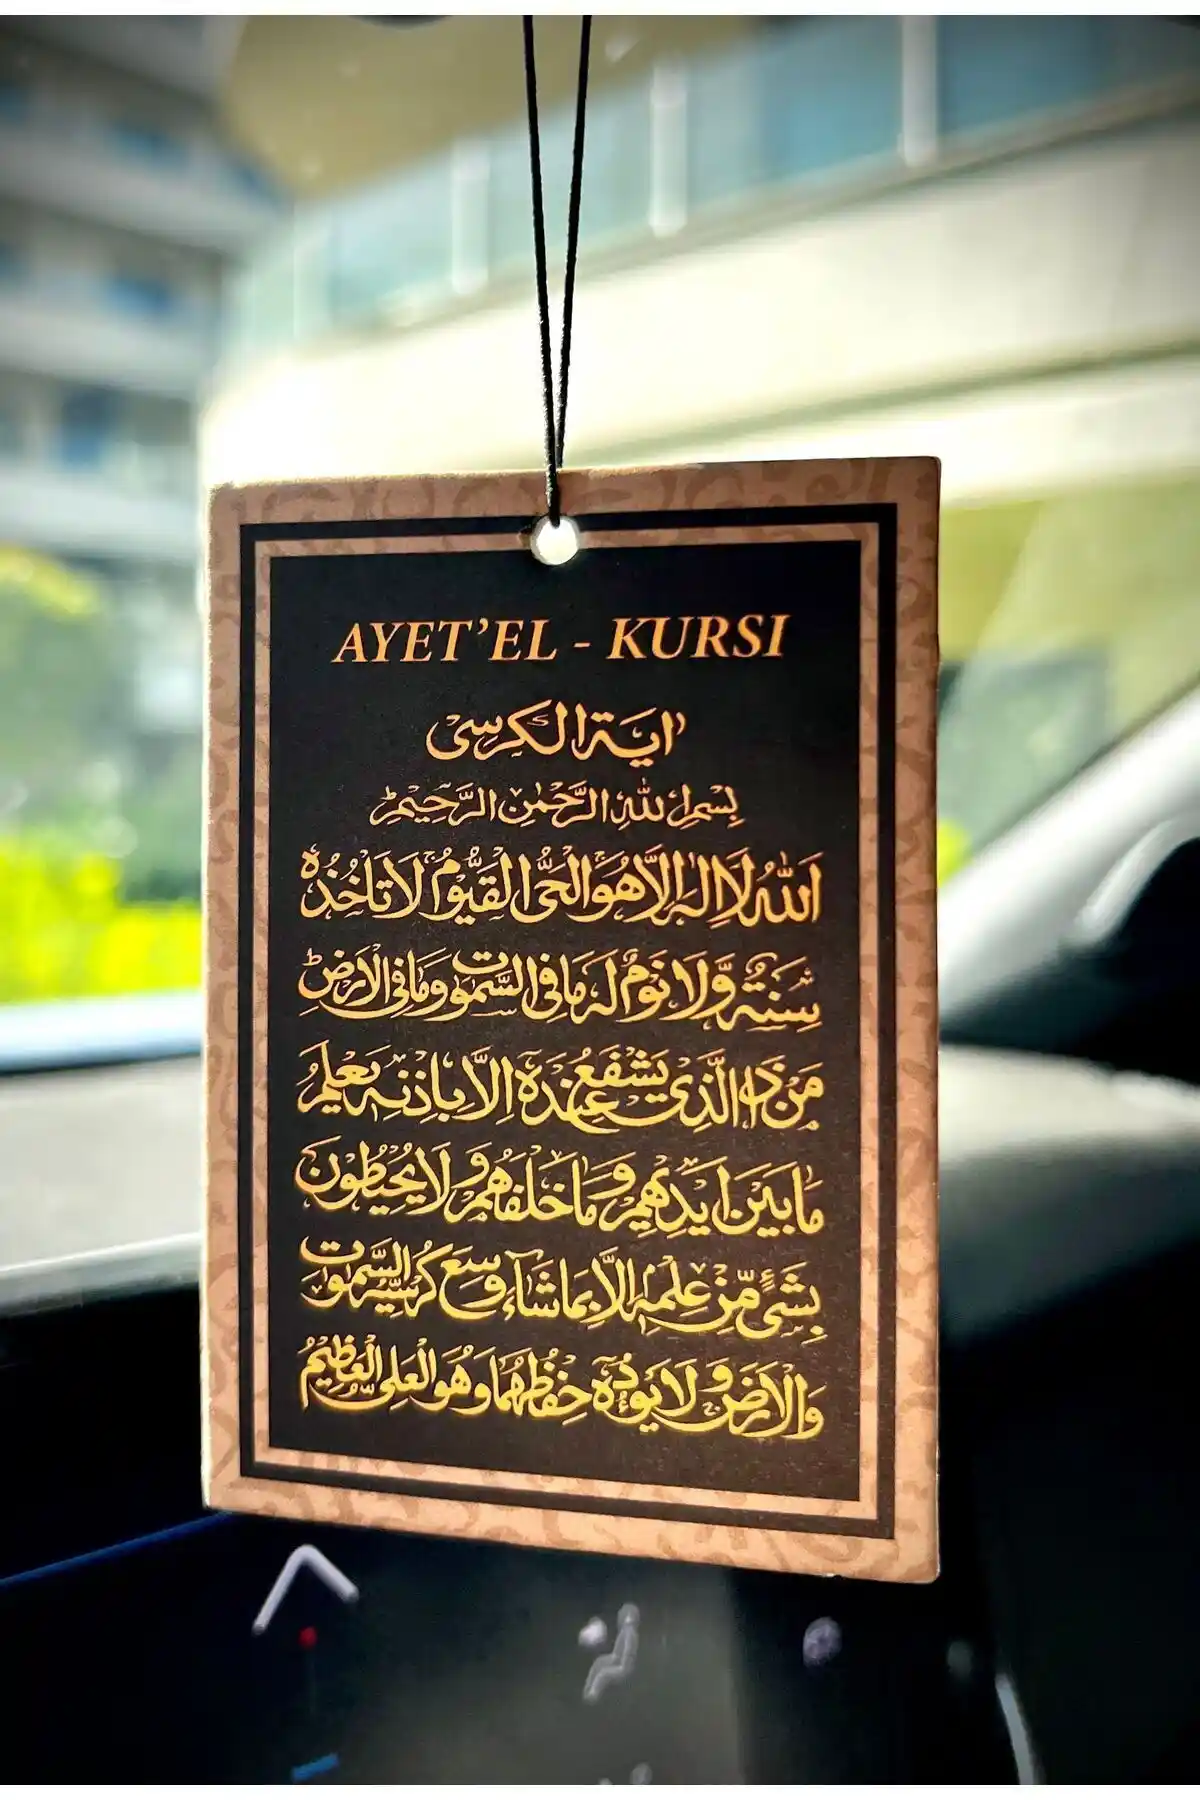 AYET'EL - KURSI
اٰيَةُ الْكُرْسِى
بِسْمِ اللهِ الرَّحْمٰنِ الرَّحِيْمِ
اَللهُ لَا اِلٰهَ اِلَّا هُوَ الْحَىُّ الْقَيُّوْمُ لَا تَاْخُذُهٗ
سِنَةٌ وَّلَا نَوْمٌ لَهٗ مَا فِى السَّمٰوٰتِ وَمَا فِى الْاَرْضِ
مَنْ ذَا الَّذِىْ يَشْفَعُ عِنْدَهٗ اِلَّا بِاِذْنِهٖ يَعْلَمُ
مَا بَيْنَ اَيْدِيْهِمْ وَمَا خَلْفَهُمْ وَلَا يُحِيْطُوْنَ
بِشَىْءٍ مِّنْ عِلْمِهٖ اِلَّا بِمَا شَآءَ وَسِعَ كُرْسِيُّهُ السَّمٰوٰتِ
وَالْاَرْضَ وَلَا يَؤُدُهٗ حِفْظُهُمَا وَهُوَ الْعَلِىُّ الْعَظِيْمُ